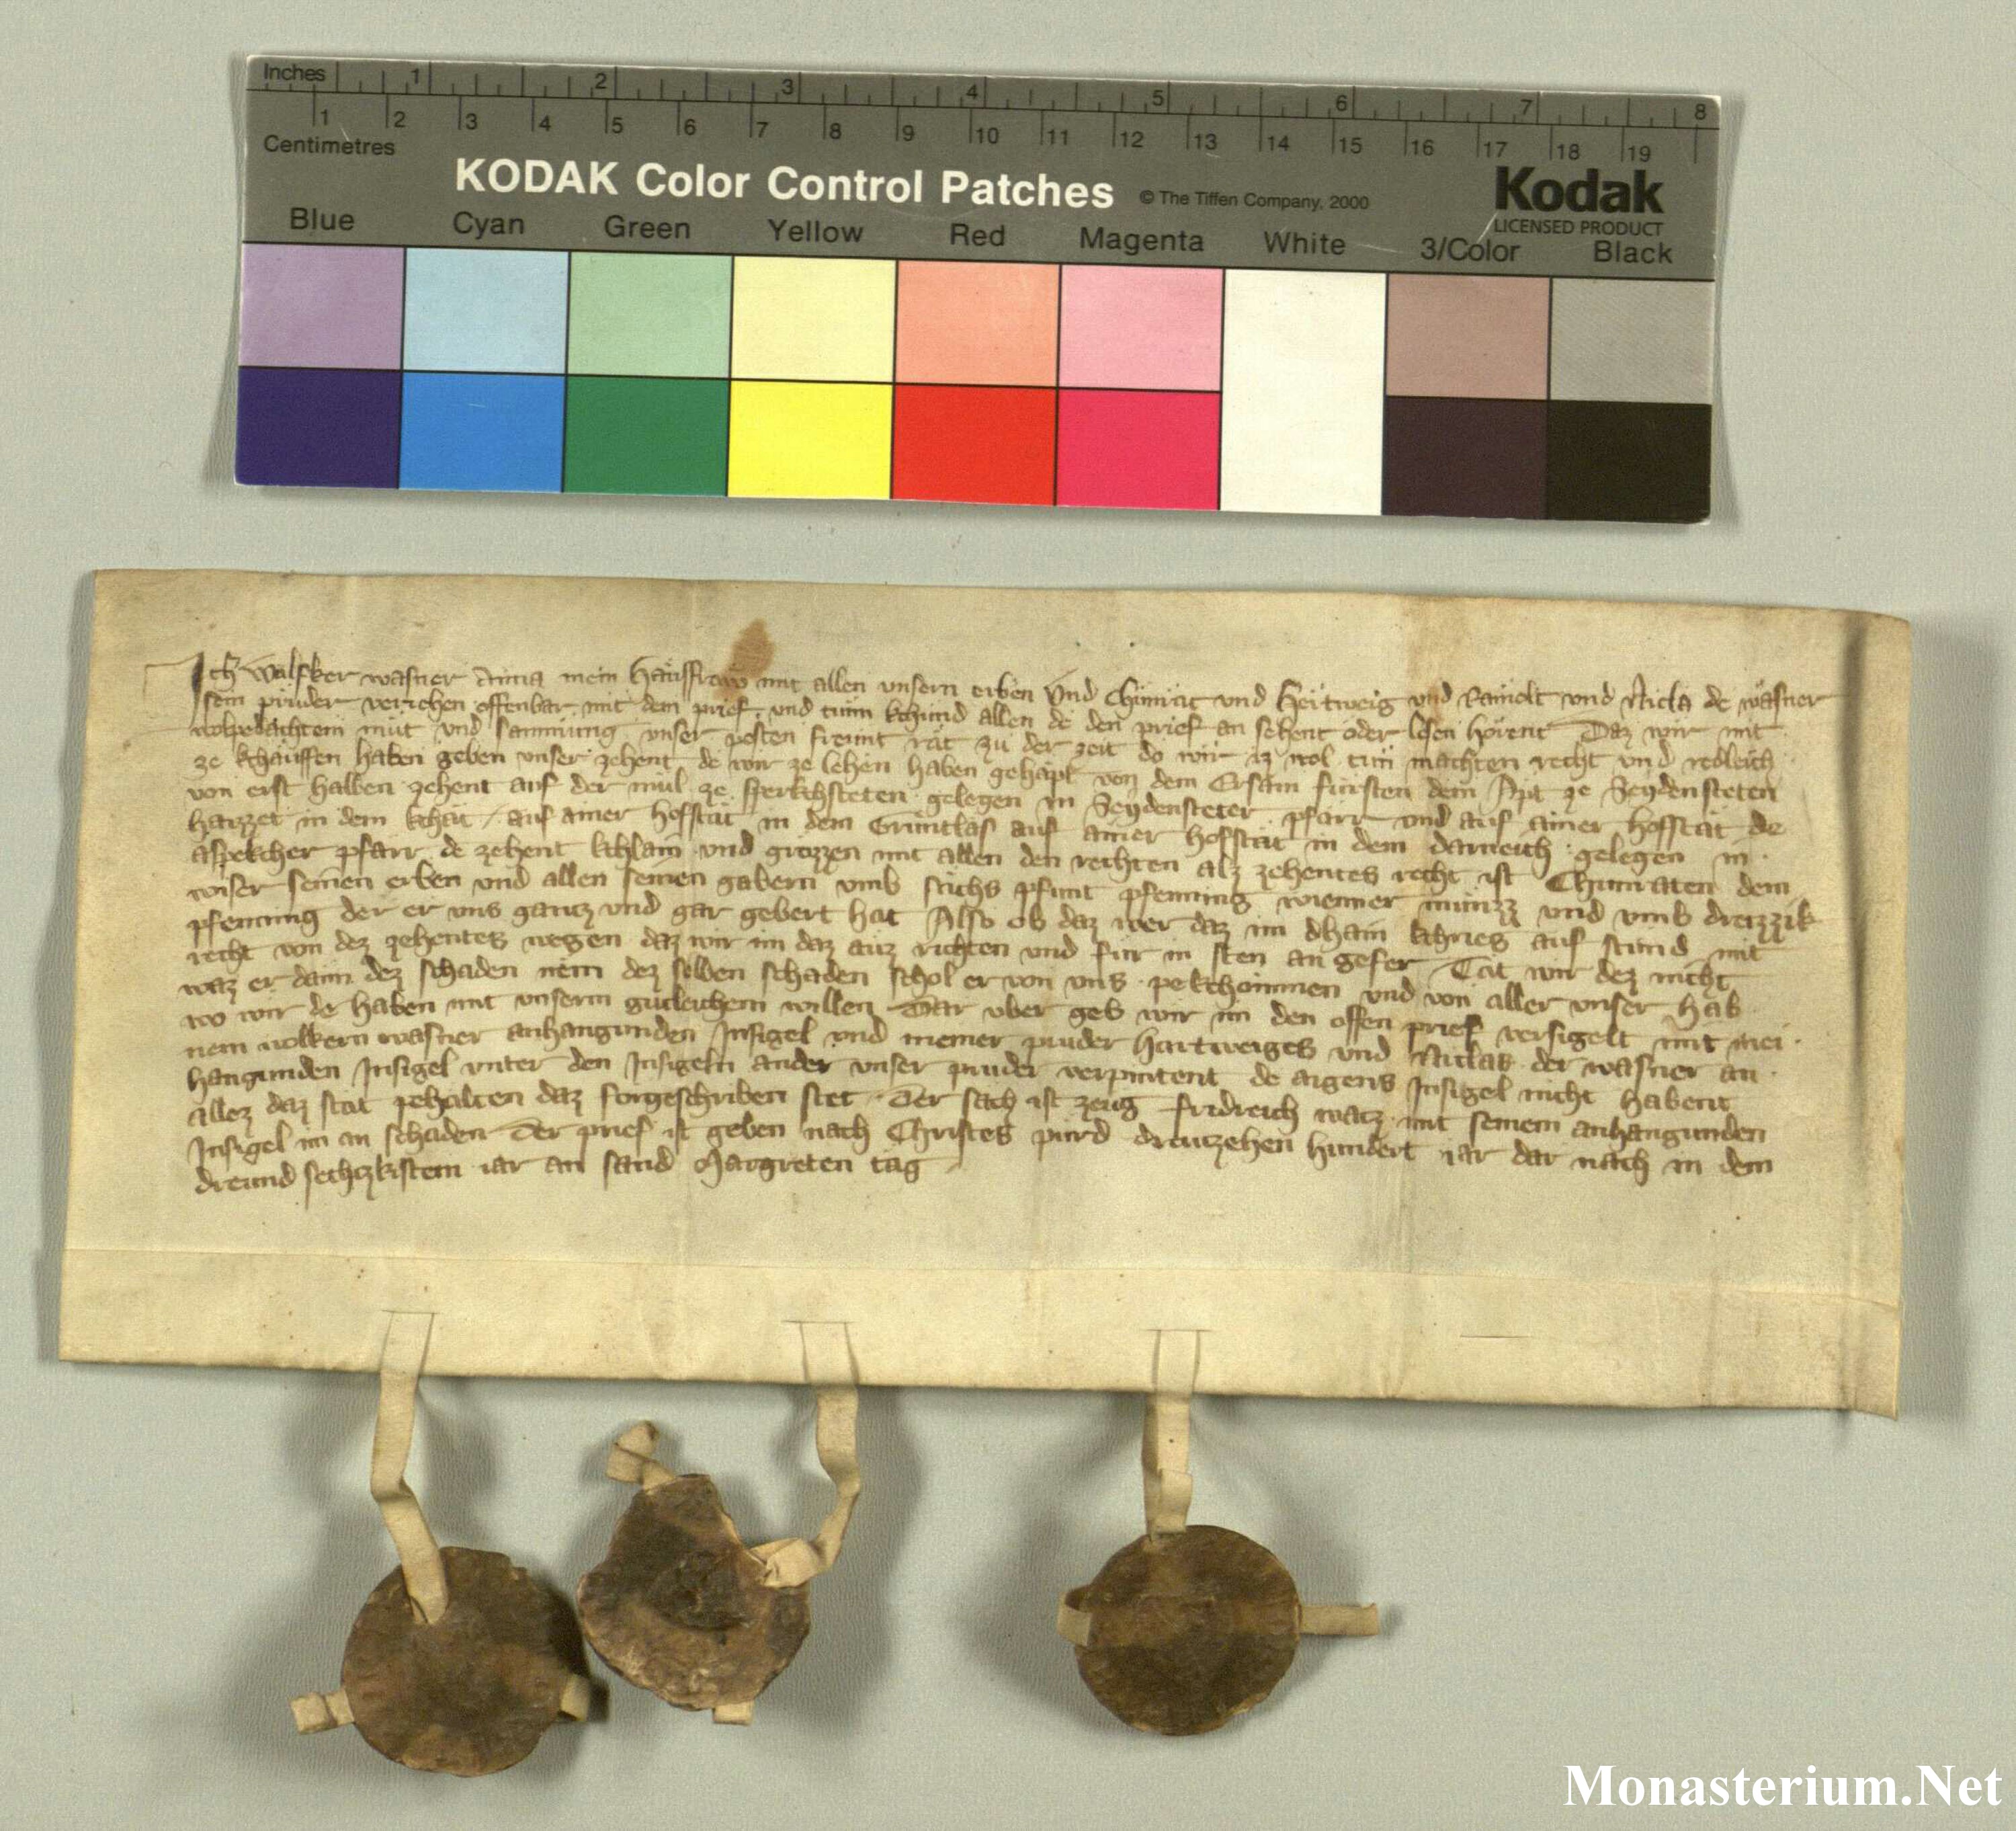 Inches 1 2 3 4 5 6 7 8
1 2 3 4 5 6 7 8 9 10 11 12 13 14 15 16 17 18 19
Centimetres
KODAK Color Control Patches © The Tiffen Company, 2000 Kodak
LICENSED PRODUCT
Blue Cyan Green Yellow Red Magenta White 3/Color Black
Ich wasner Anna mein Hausfraw mit allen unsern erben Und Chunrat und Hertweig und Ramolt und Nicla de wasner
sein pruder veriehen offenbar mit dem prief und tuen kchund allen de den prief an sehent oder lesen hörent Daz wir mit
wolpedachtem mut und sammung unser pesten freunt rat zu der zeit do wir iz wol tun machten recht und redleich
ze kchauffen haben geben unser zehent de wir ze lehen haben gehapt von dem Ersam fursten dem Apt ze Seydensteten
von erst halben zehent auf der mul ze gelegen in Seydensteter pfarr und auf ainer hofstat de
haizzet in dem auf ainer hofstat in dem auf ainer hofstat in dem gelegen in
aspekcher pfarr de zehent kchlain und grozzen mit allen den rechten alz zehentes recht ist Chunraten dem
seinen erben und allen seinen umb sechs pfunt pfenning wienner munzz und umb dreizzik
pfenning der er uns gancz und gar gebert hat Also ob daz wer daz im dhain kchrieg auf stund mit
recht von dez zehentes wegen daz wir im daz auz richten und fur in sten an gefer Tet wir dez nicht
waz er dann dez schaden nem dez selben schaden schol er von uns pekchommen und von aller unser hab
wo wir de haben mit unserm gutleichem willen Dar uber geb wir im den offen prief versigelt mit mei
nem wasner anhangunden Insigel und meiner pruder Hartweiges und Niclas der wasner an
hangunden Insigel unter den Insigeln ander unser pruder verpintent de aigens Insigel nicht habent
allez daz stat pehalten daz forgeschriben stet Der sach ist zeug fridreich mit seinem anhangunden
Insigel im an schaden Der prief ist geben nach Christes purd dreuzehen hundert iar dar nach in dem
dreund sechczkistem iar an sand Margreten tag
Monasterium.Net